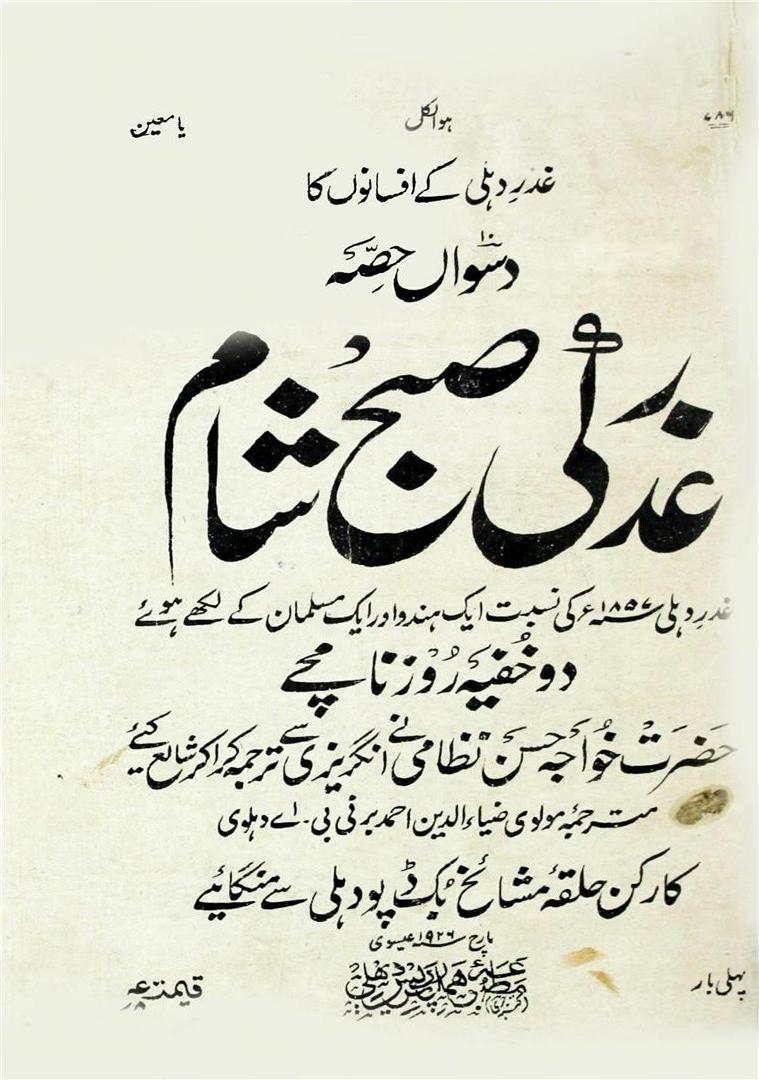 ۷۸۶ ہوالکل یا معین
غدرِ دہلی کے افسانوں کا
دسواں ۱۰ حصّہ
غدر کی صبح شام
غدرِ دہلی ۱۸۵۷ء کی نسبت ایک ہندو اور ایک مسلمان کے لکھے ہوئے
دو خُفیہ رُوزنامچے
حَضرَتْ خُواجَہ حسَنْ نظامی نے انگریزی سے ترجمہ کراکر شایع کیئے
مترجمہ مولوی ضیاء الدین احمد برنی بی۔اے دہلوی
کارکن حلقۂ مشائخ بُک ڈپو دہلی سے منگائیے
مارچ ۱۹۲۶ عیسوی
پہلی بار مطبوعہ ہمدرد پریس دہلی قیمت